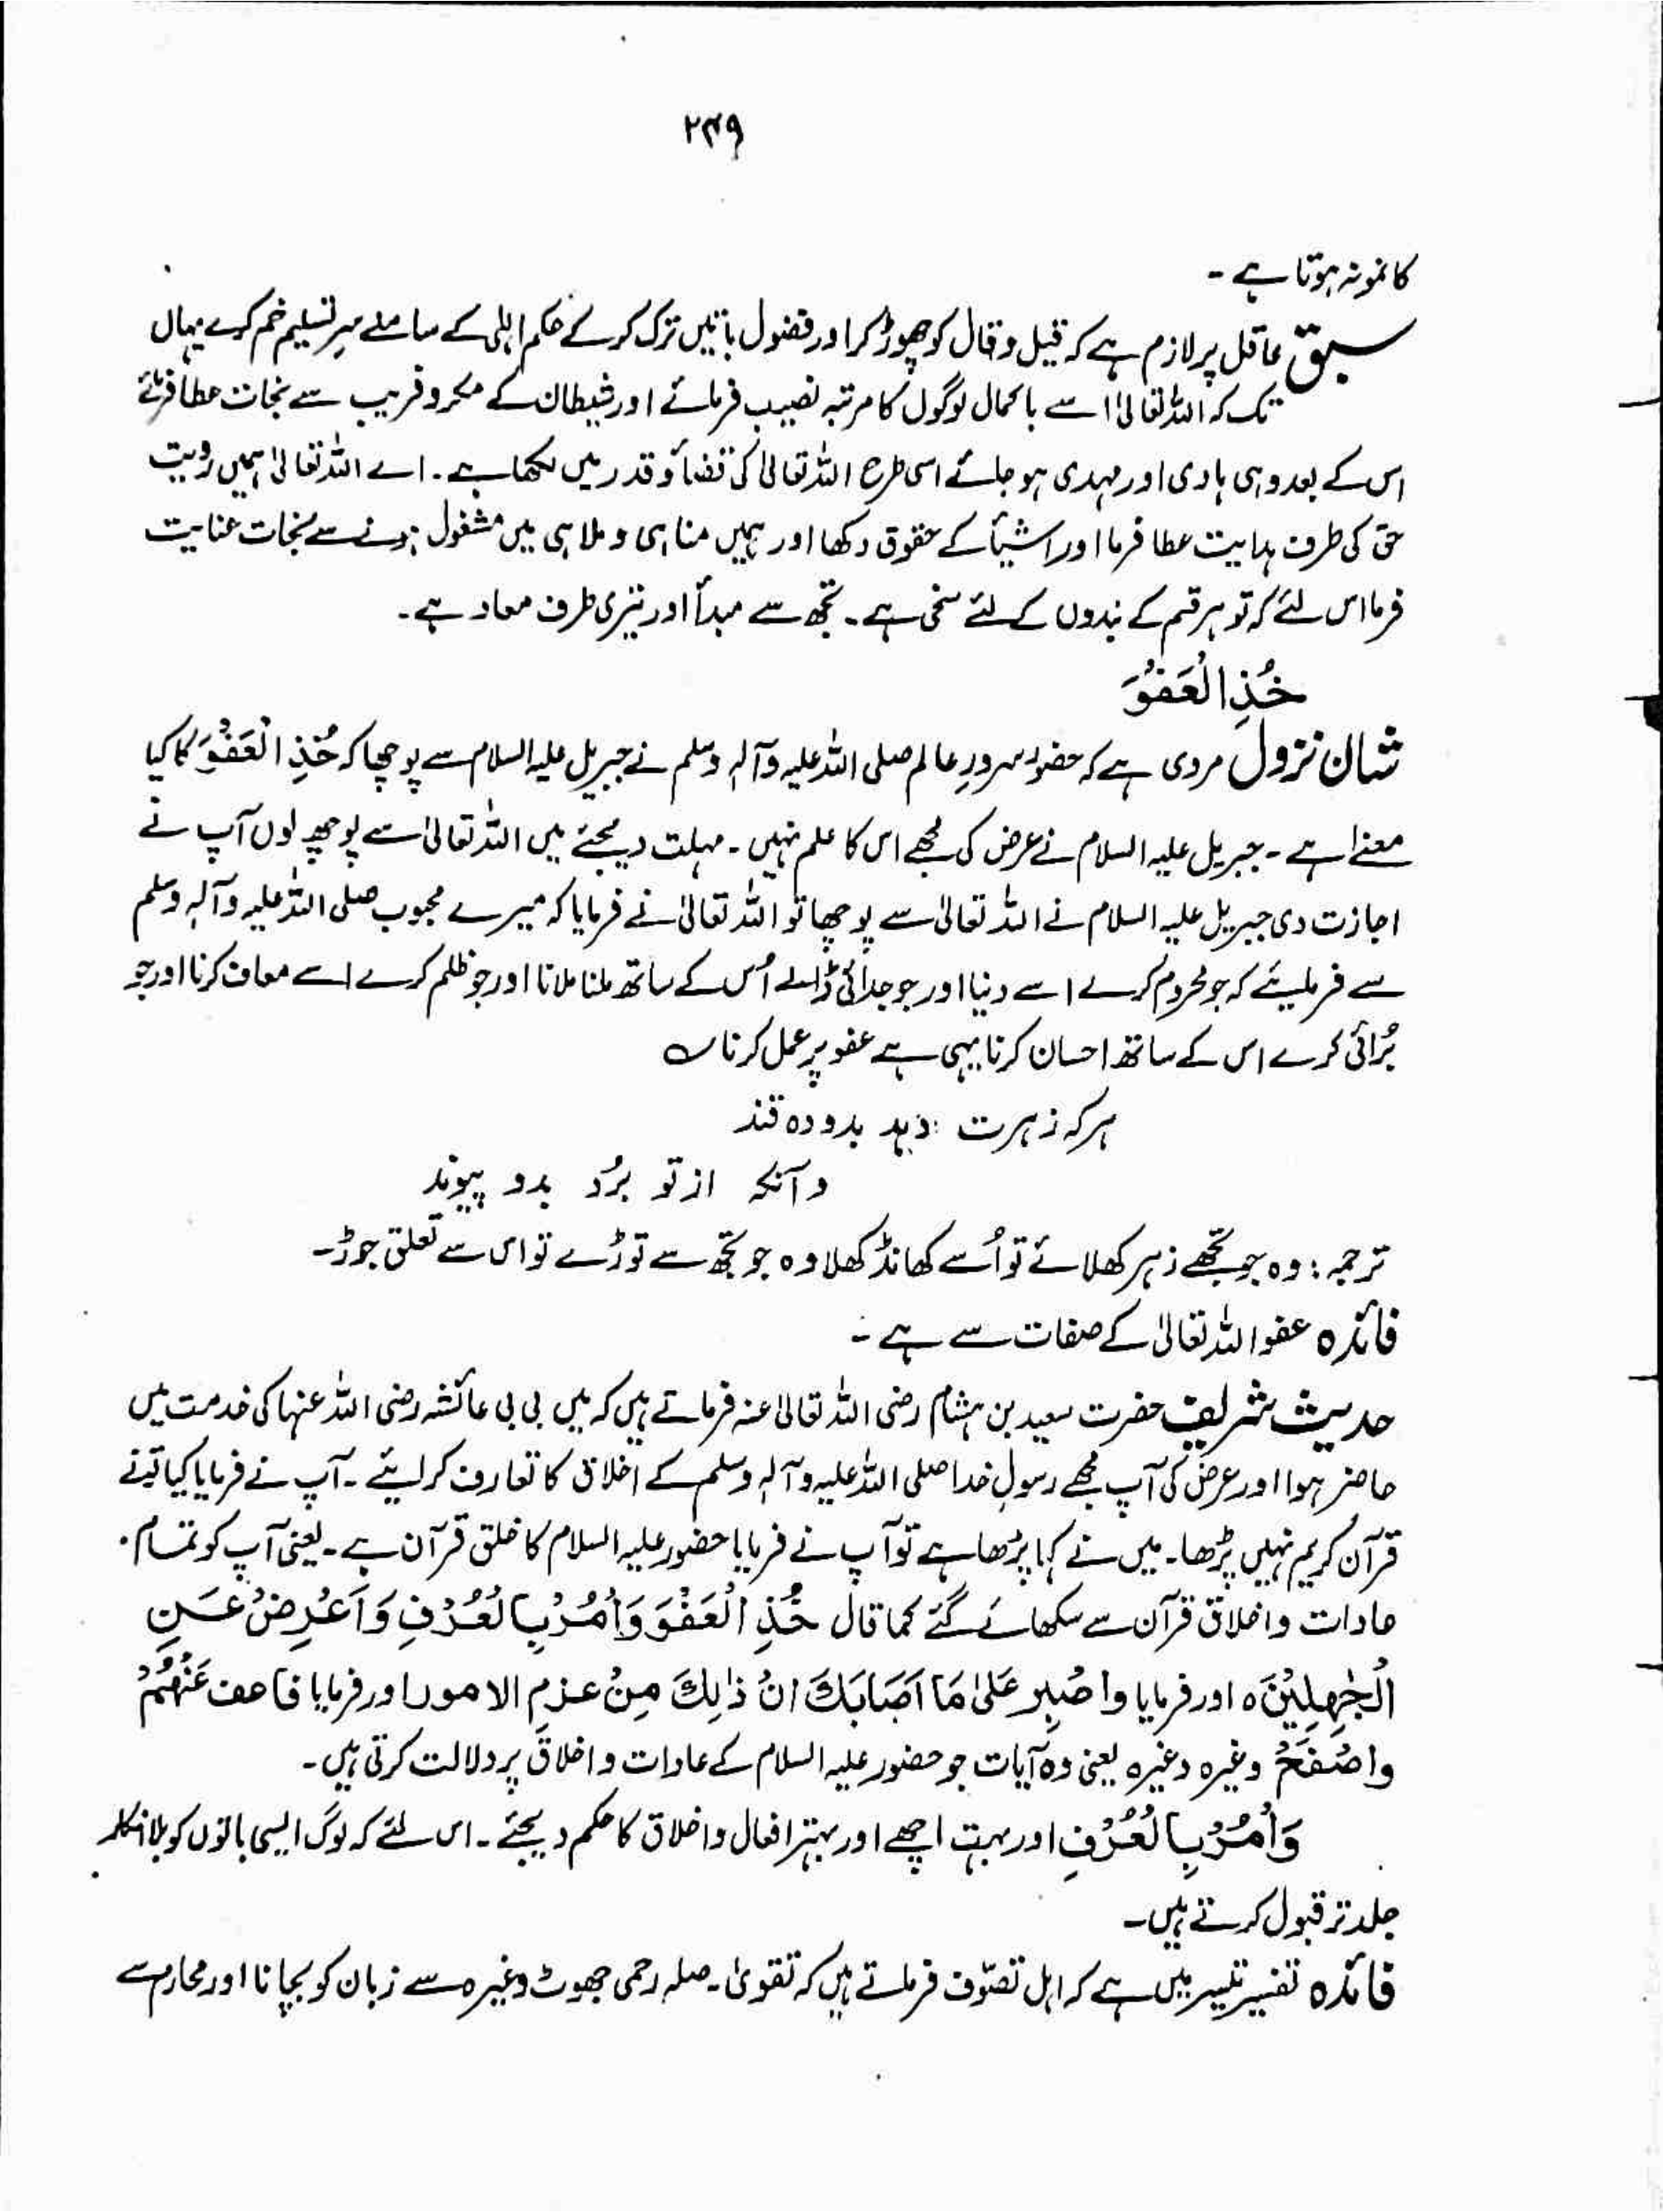 ۲۴۹
کا نمونہ ہوتا ہے ۔
سبق عاقل پر لازم ہے کہ قیل و قال کو چھوڑ کر اور فضول باتیں ترک کر کے حکم الٰہی کے سامنے سرِ تسلیم خم کرے یہاں
تک کہ اللہ تعالیٰ اسے باکمال لوگوں کا مرتبہ نصیب فرمائے اور شیطان کے مکر و فریب سے نجات عطا فرمائے
اس کے بعد وہی ہادی اور مہدی ہو جائے اسی طرح اللہ تعالیٰ کی قضأ و قدر میں لکھا ہے ۔ اے اللہ تعالیٰ ہمیں رویت
حق کی طرف ہدایت عطا فرما اور اشیأ کے حقوق دکھا اور ہمیں مناہی و ملاہی میں مشغول ہونے سے نجات عنایت
فرما اس لئے کہ تو ہر قسم کے بندوں کے لئے سخی ہے ۔ تجھ سے مبدأ اور تیری طرف معاد ہے ۔
خُذِ الْعَفْوَ
شان نزول مروی ہے کہ حضور سرورِ عالم صلی اللہ علیہ وآلہٖ وسلم نے جبریل علیہ السلام سے پوچھا کہ خُذِ الْعَفْوَ کا کیا
معنےٰ ہے ۔ جبریل علیہ السلام نے عرض کی مجھے اس کا علم نہیں ۔ مہلت دیجئے میں اللہ تعالیٰ سے پوچھ لوں آپ نے
اجازت دی جبریل علیہ السلام نے اللہ تعالیٰ سے پوچھا تو اللہ تعالیٰ نے فرمایا کہ میرے محبوب صلی اللہ علیہ وآلہٖ وسلم
سے فرمایئے کہ جو محروم کرے اسے دنیا اور جو جدائی ڈالے اُس کے ساتھ ملنا ملانا اور جو ظلم کرے اسے معاف کرنا اور جو
بُرائی کرے اس کے ساتھ احسان کرنا یہی ہے عفو پر عمل کرنا ؎
ہر کہ زہرت دہد بدو دہ قند
وآنکہ از تو بُرد بدو پیوند
ترجمہ : وہ جو تجھے زہر کھلائے تو اُسے کھانڈ کھلا وہ جو تجھ سے توڑے تو اس سے تعلق جوڑ ۔
فائدہ عفو اللہ تعالیٰ کے صفات سے ہے ۔
حدیث شریف حضرت سعید بن ہشام رضی اللہ تعالیٰ عنہ فرماتے ہیں کہ میں بی بی عائشہ رضی اللہ عنہا کی خدمت میں
حاضر ہوا اور عرض کی آپ مجھے رسولِ خدا صلی اللہ علیہ وآلہٖ وسلم کے اخلاق کا تعارف کرایئے ۔ آپ نے فرمایا کیا تو نے
قرآن کریم نہیں پڑھا ۔ میں نے کہا پڑھا ہے تو آپ نے فرمایا حضور علیہ السلام کا خلق قرآن ہے ۔ یعنی آپ کو تمام
عادات و اخلاق قرآن سے سکھائے گئے کما قال خُذِ الْعَفْوَ وَأْمُرْ بِالْعُرْفِ وَاَعْرِضْ عَنِ
الْجٰهِلِيْنَ ہ اور فرمایا واصْبِر عَلىٰ مَا اَصَابَكَ انْ ذٰلِكَ مِنْ عزمِ الامور اور فرمایا فاعف عَنْهُمْ
واصْفَحْ وغیرہ وغیرہ یعنی وہ آیات جو حضور علیہ السلام کے عادات و اخلاق پر دلالت کرتی ہیں ۔
وَأْمُرْ بِالْعُرْفِ اور بہت اچھے اور بہتر افعال و اخلاق کا حکم دیجئے ۔ اس لئے کہ لوگ ایسی باتوں کو بلا انکار
جلد تر قبول کرتے ہیں ۔
فائدہ تفسیر تیسیر میں ہے کہ اہل تصوّف فرماتے ہیں کہ تقویٰ ۔ صلہ رحمی جھوٹ وغیرہ سے زبان کو بچانا اور محارم سے